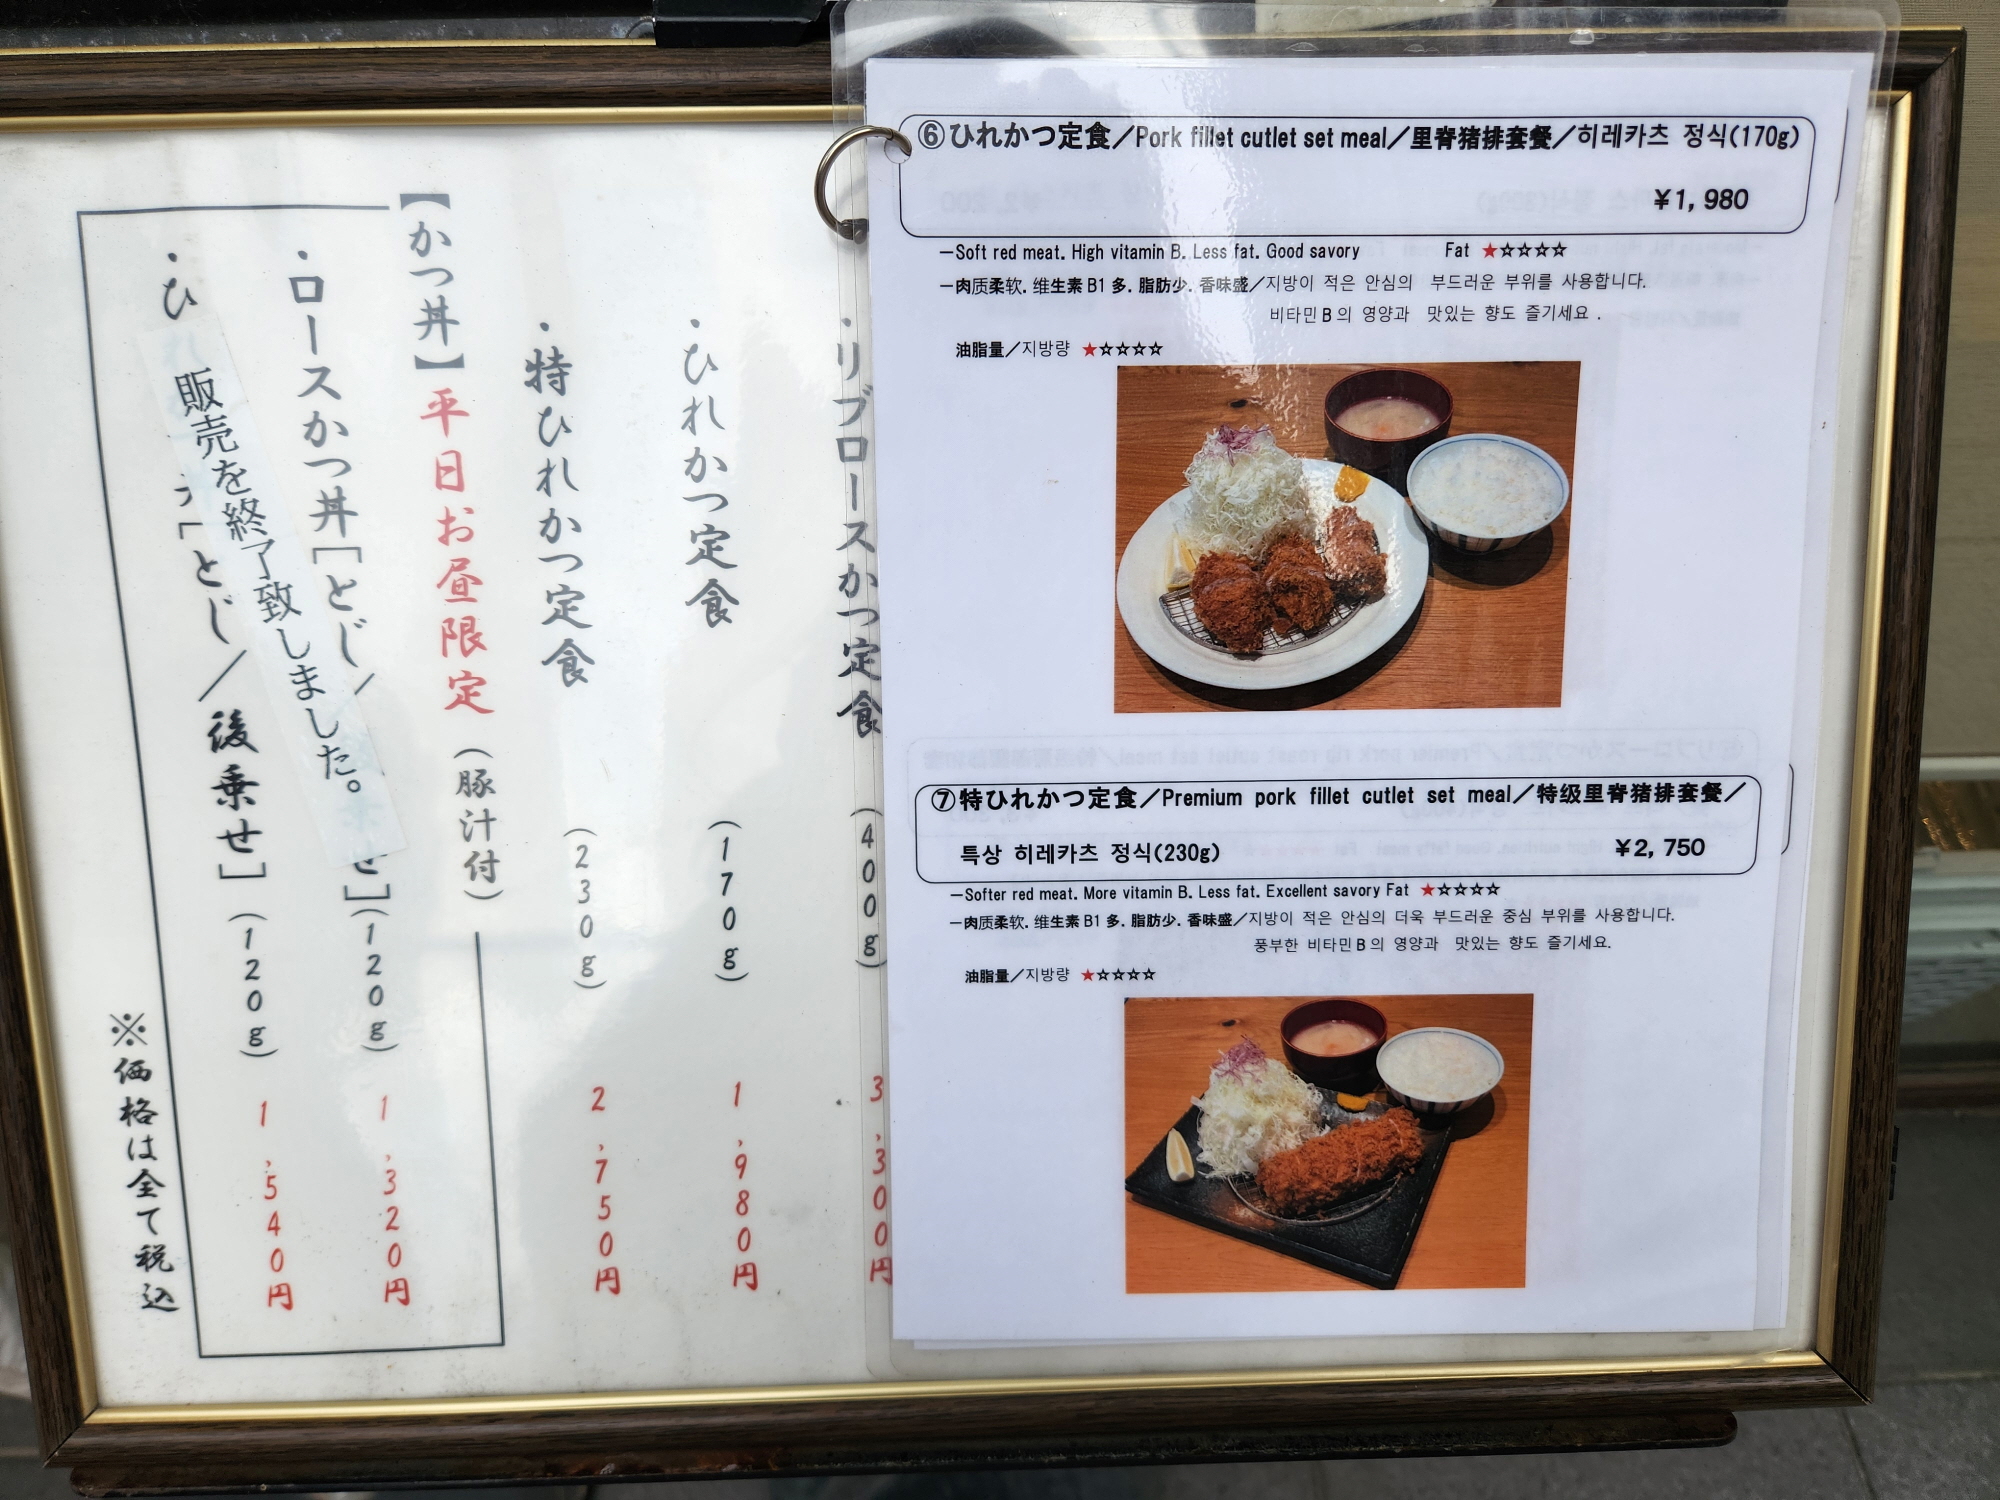 ・リブロースかつ定食 (400g) 3,300円
・ひれかつ定食 (170g) 1,980円
・特ひれかつ定食 (230g) 2,750円
【かつ丼】平日お昼限定(豚汁付)
・ロースかつ丼[とじ/ せ](120g) 1,320円
・ひ [とじ/後乗せ](120g) 1,540円
販売を終了致しました。
※価格は全て税込
⑥ひれかつ定食/Pork fillet cutlet set meal/里脊猪排套餐/히레카츠 정식(170g)
¥1,980
—Soft red meat. High vitamin B. Less fat. Good savory Fat ★☆☆☆☆
—肉质柔软. 维生素 B1 多. 脂肪少. 香味盛/지방이 적은 안심의 부드러운 부위를 사용합니다.
비타민B의 영양과 맛있는 향도 즐기세요 .
油脂量/지방량 ★☆☆☆☆
⑦特ひれかつ定食/Premium pork fillet cutlet set meal/特级里脊猪排套餐/
특상 히레카츠 정식(230g) ¥2,750
—Softer red meat. More vitamin B. Less fat. Excellent savory Fat ★☆☆☆☆
—肉质柔软. 维生素 B1 多. 脂肪少. 香味盛/지방이 적은 안심의 더욱 부드러운 중심 부위를 사용합니다.
풍부한 비타민B의 영양과 맛있는 향도 즐기세요.
油脂量/지방량 ★☆☆☆☆